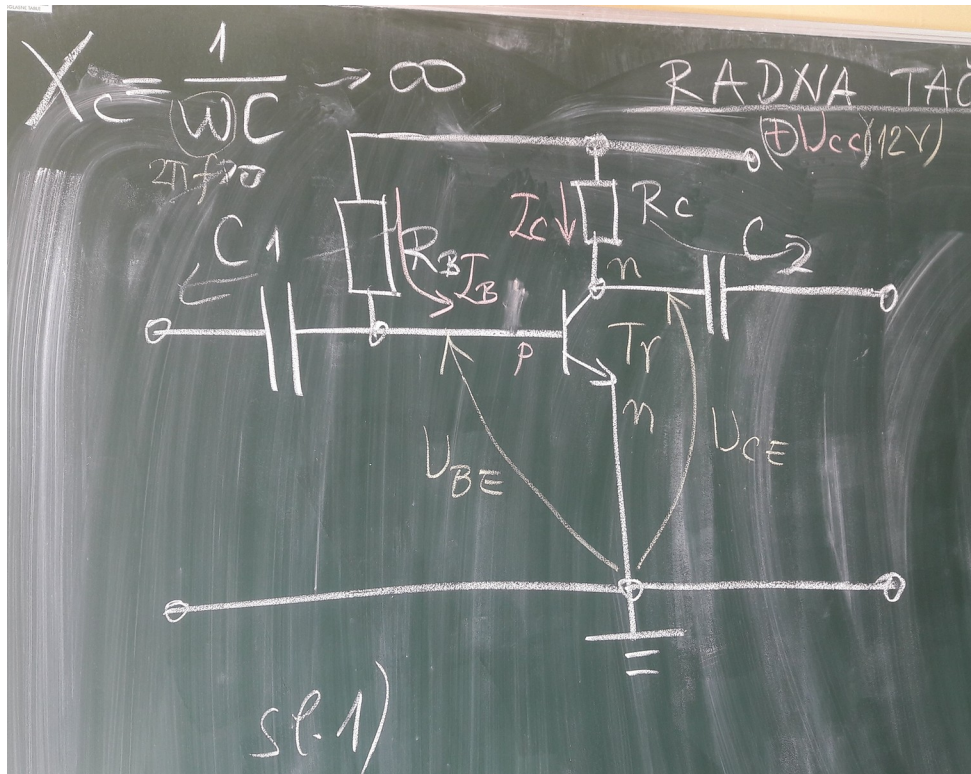 X_C = 1/ωC → ∞
2πf→0
RADNA TAČ
+UCC (12V)
C1
RB
IB
IC
RC
C2
n
p
Tr
n
UBE
UCE
sl.1)